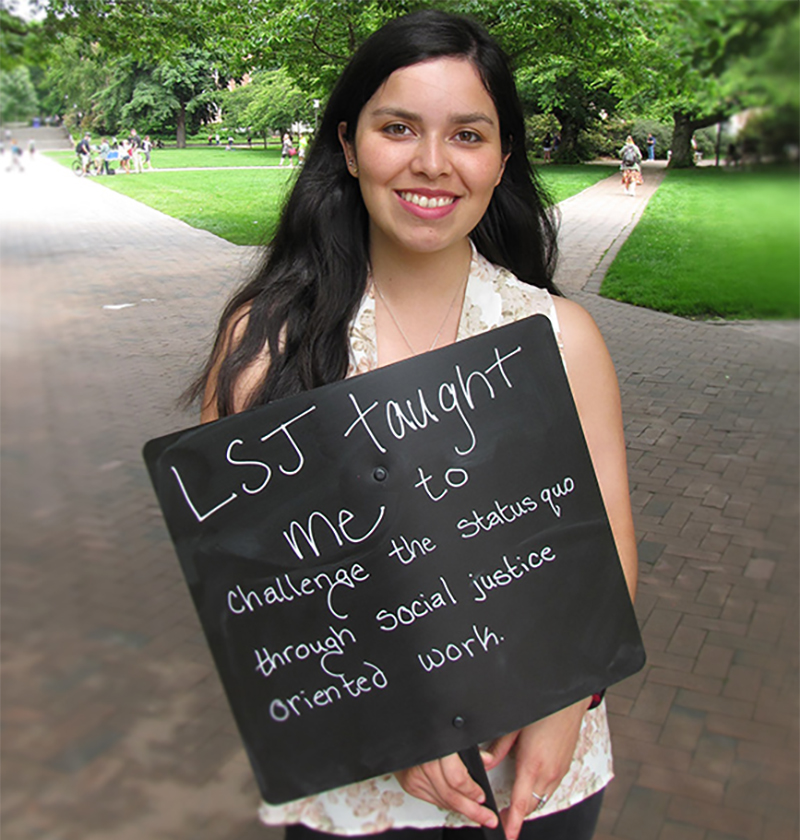 LSJ taught
me to
challenge the status quo
through social justice
oriented work.